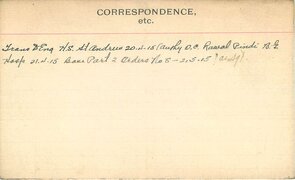 CORRESPONDENCE,
etc.
Trans to Eng H.S. St Andrew 20.4.15 (authy O.C. Rawal Pindi B.G
Hosp 21.4.15 Base Part 2 Orders No 8 - 2.5.15